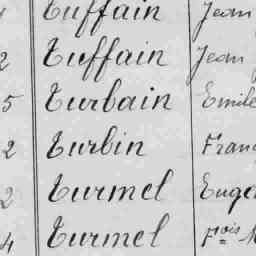 Tuffain Jean
2 Tuffain Jean
5 Turbain Emile
2 Turbin Franç
2 Turmel Eugè
4 Turmel Fçois